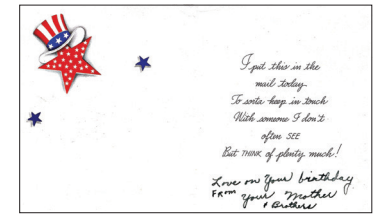 I put this in the
mail today
To sorta keep in touch
With someone I don't
often SEE
But THINK of plenty much!
Love on your birthday
FROM your Mother
& Brothers